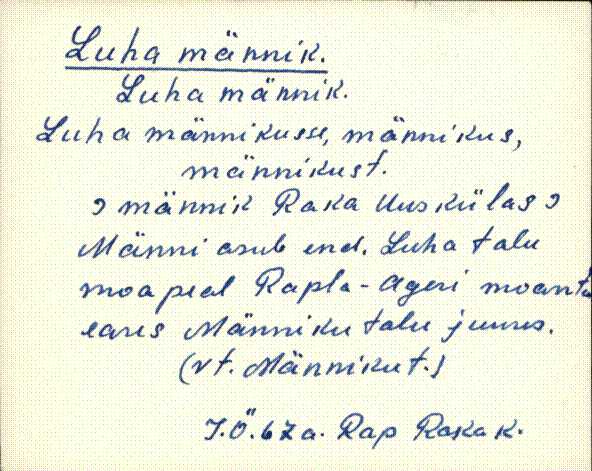 Luha männik.
Luha männik.
Luha männikusse, männikus,
männikust.
männik Raka Uuskülas
Männi asub end. Luha talu
moapeal Rapla-Ageri moantee
eares Männiku talu juures.
(vt. Männiku t.)
J.Ö. 67 a. Rap Raka k.